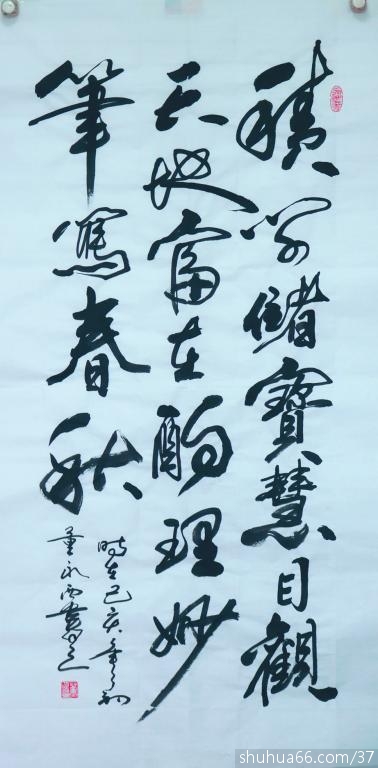 積學儲寶慧目觀
天地富在酌理妙
筆寫春秋
時在己亥年之初
董 書
shuhua66.com/37